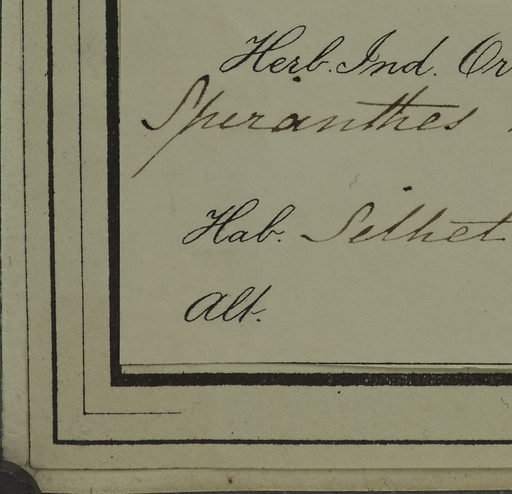 Herb. Ind. Or
Spiranthes
Hab. Silhet
Alt.